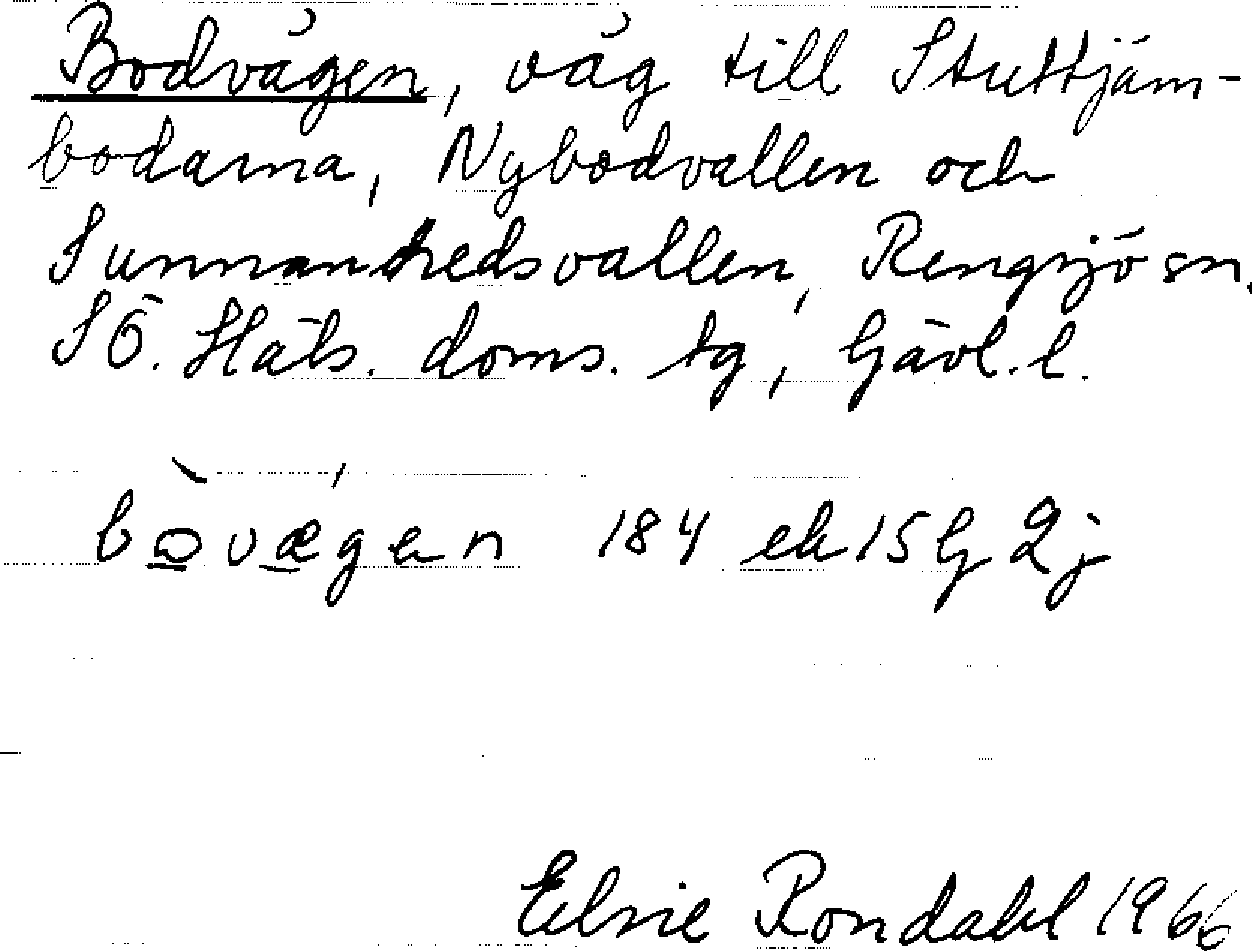 Bodvägen, väg till Stuttjärn-
bodarna, Nybodvallen och
Sunnanhedsvallen, Rengsjö sn.
SÖ. Häls. doms. tg, Gävl. l.
bòvǽgen 184 ek 15G2j
Elvie Rondahl 1966